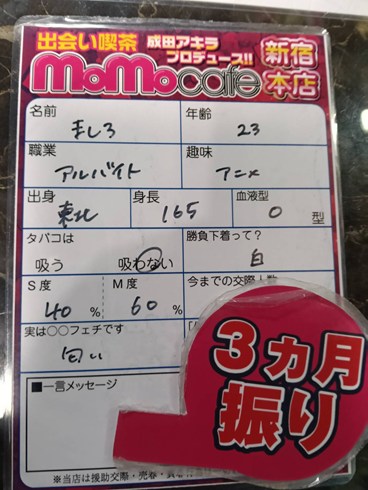 出会い喫茶 成田アキラ
プロデュース!!
MoMocafe 新宿
本店
名前 ましろ
年齢 23
職業 アルバイト
趣味 アニメ
出身 東北
身長 165
血液型 O 型
タバコは
吸う 吸わない
勝負下着って?
白
S度 40 %
M度 60 %
今までの交際人数
実は○○フェチです
匂い
■一言メッセージ
3ヵ月
振り
※当店は援助交際・売春・